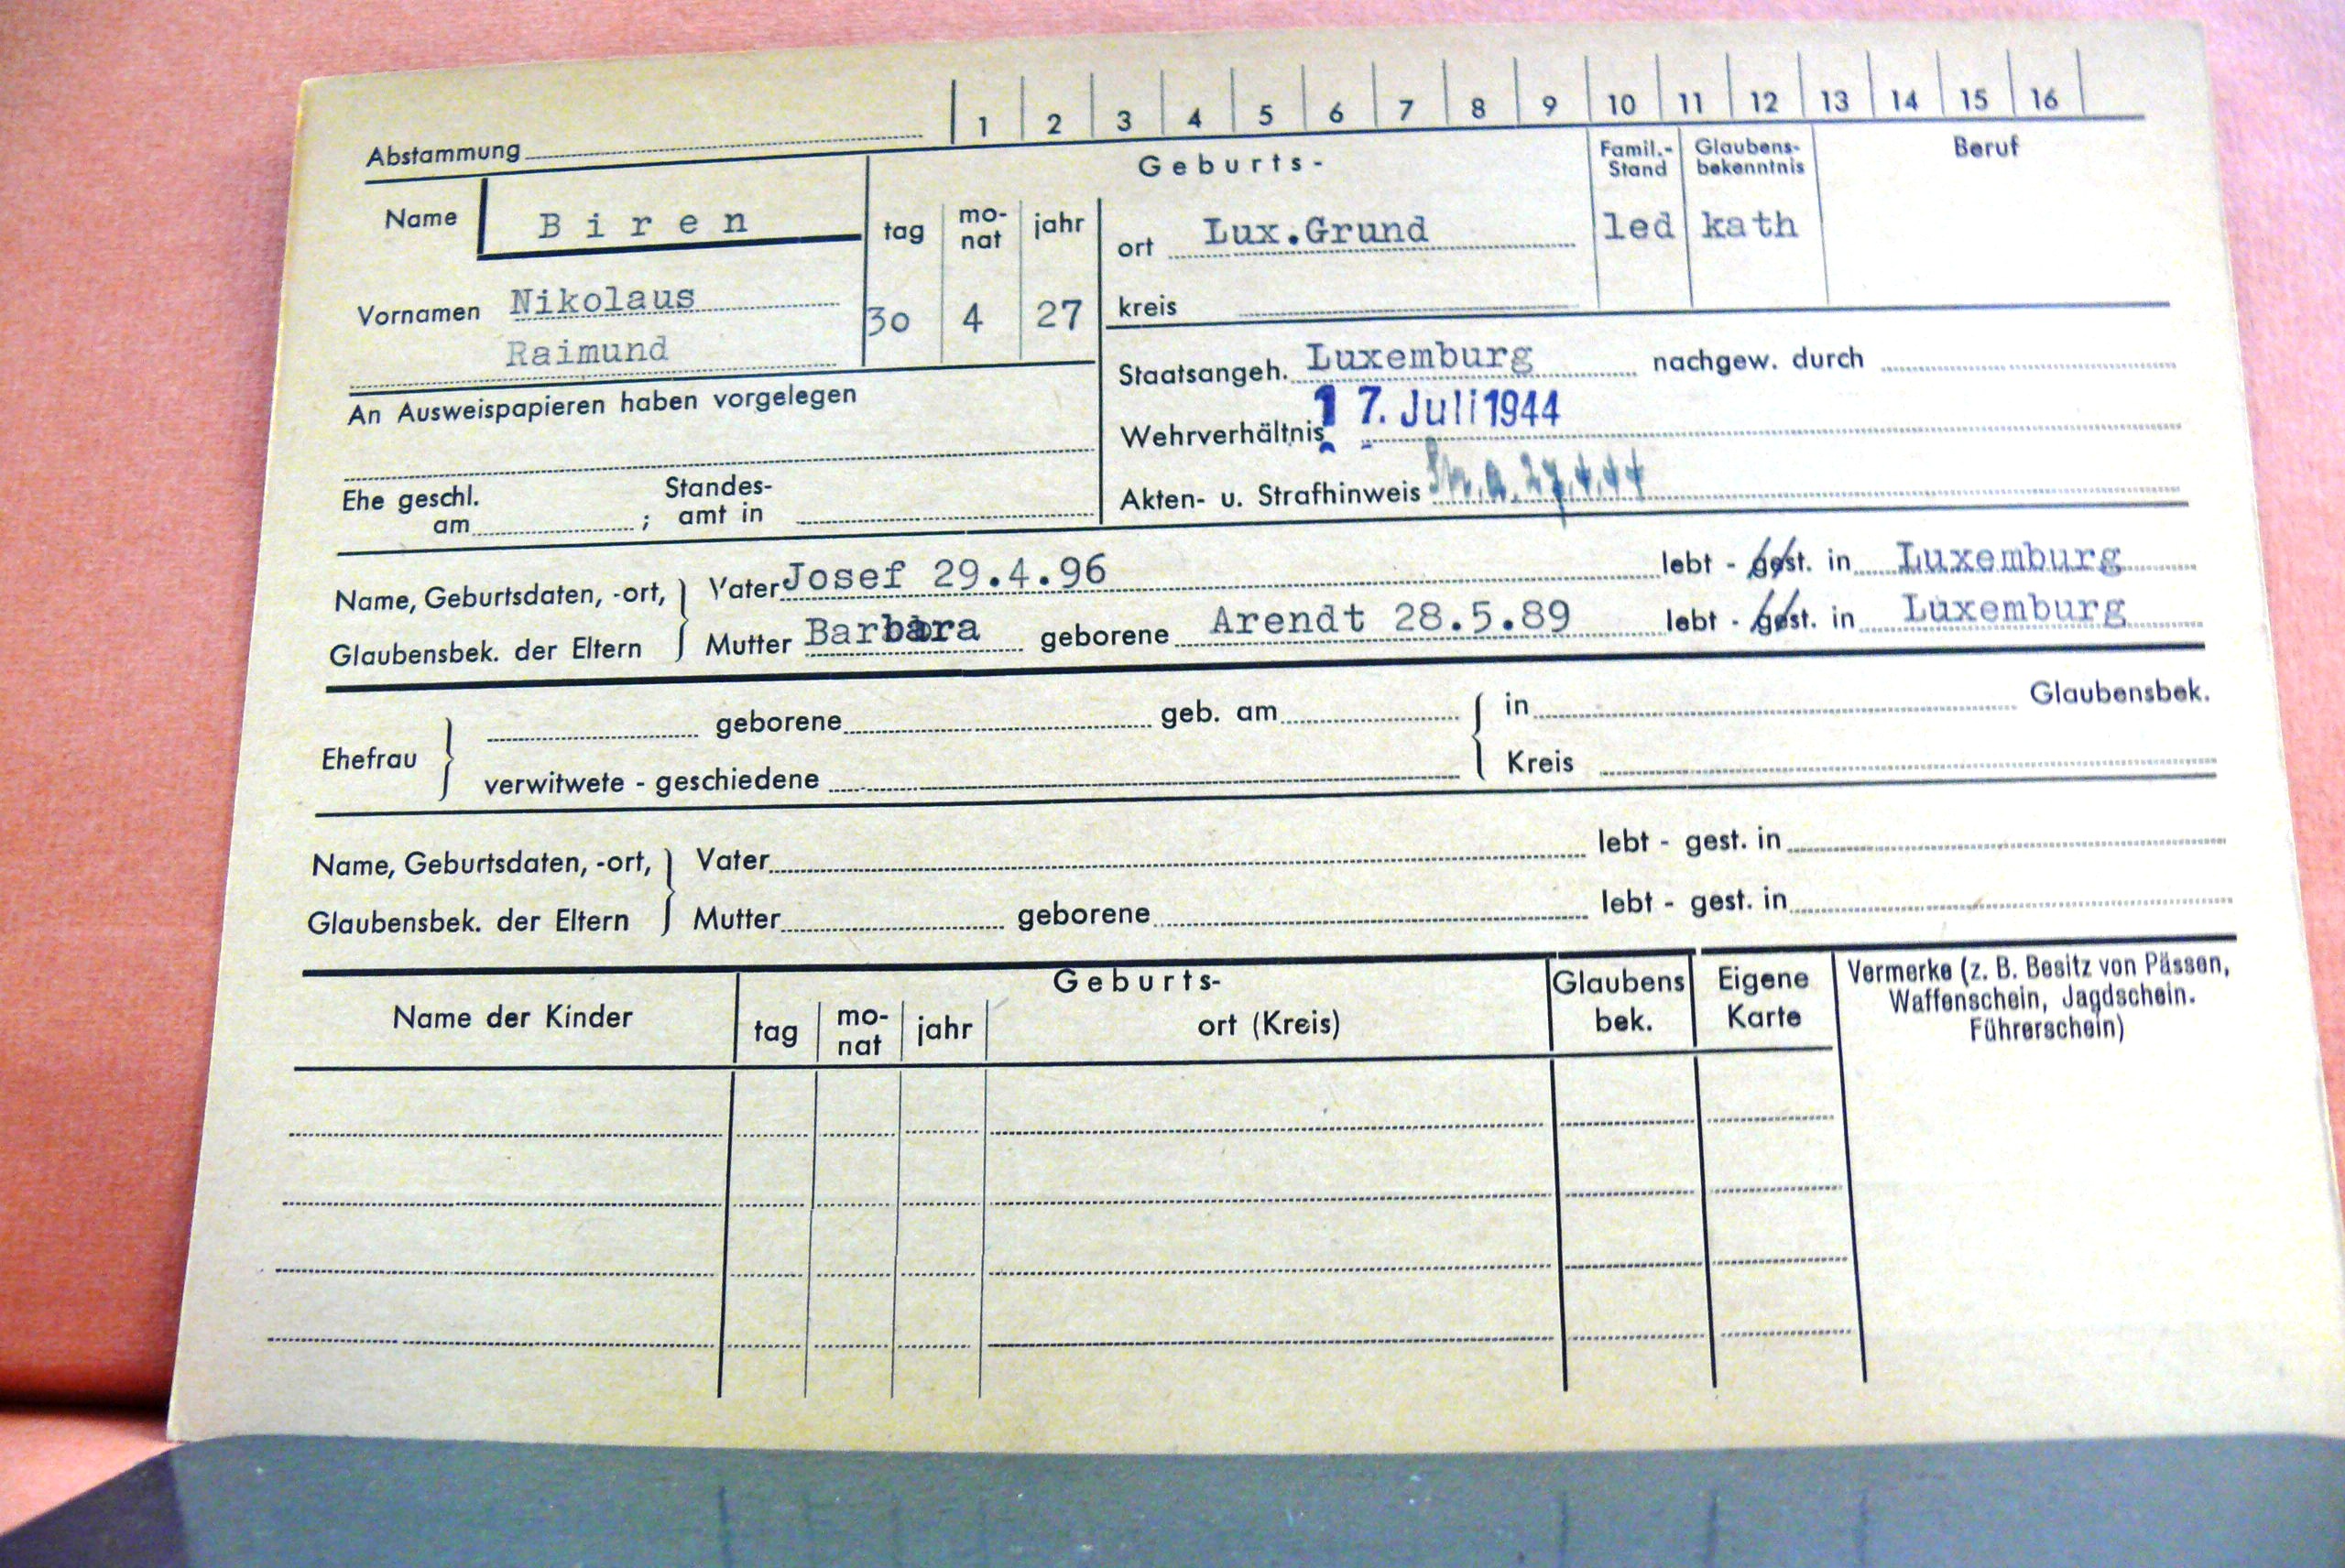 Abstammung 1 2 3 4 5 6 7 8 9 10 11 12 13 14 15 16
Name Biren
Vornamen Nikolaus
Raimund
Geburts-
tag mo-nat jahr
30 4 27
ort Lux.Grund
kreis
Famil.-Stand led
Glaubens-bekenntnis kath
Beruf
An Ausweispapieren haben vorgelegen
Ehe geschl. am ; Standes-amt in
Staatsangeh. Luxemburg nachgew. durch
Wehrverhältnis 17. Juli 1944
Akten- u. Strafhinweis 27.4.44
Name, Geburtsdaten, -ort, Glaubensbek. der Eltern
Vater Josef 29.4.96 lebt - gest. in Luxemburg
Mutter Barbara geborene Arendt 28.5.89 lebt - gest. in Luxemburg
Ehefrau geborene geb. am in Glaubensbek.
verwitwete - geschiedene Kreis
Name, Geburtsdaten, -ort, Vater lebt - gest. in
Glaubensbek. der Eltern Mutter geborene lebt - gest. in
Name der Kinder
Geburts-
tag mo-nat jahr ort (Kreis)
Glaubens bek.
Eigene Karte
Vermerke (z. B. Besitz von Pässen,
Waffenschein, Jagdschein.
Führerschein)